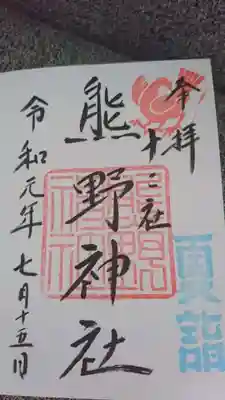 奉拝
十二社
熊野神社
令和元年七月十五日
雨詣